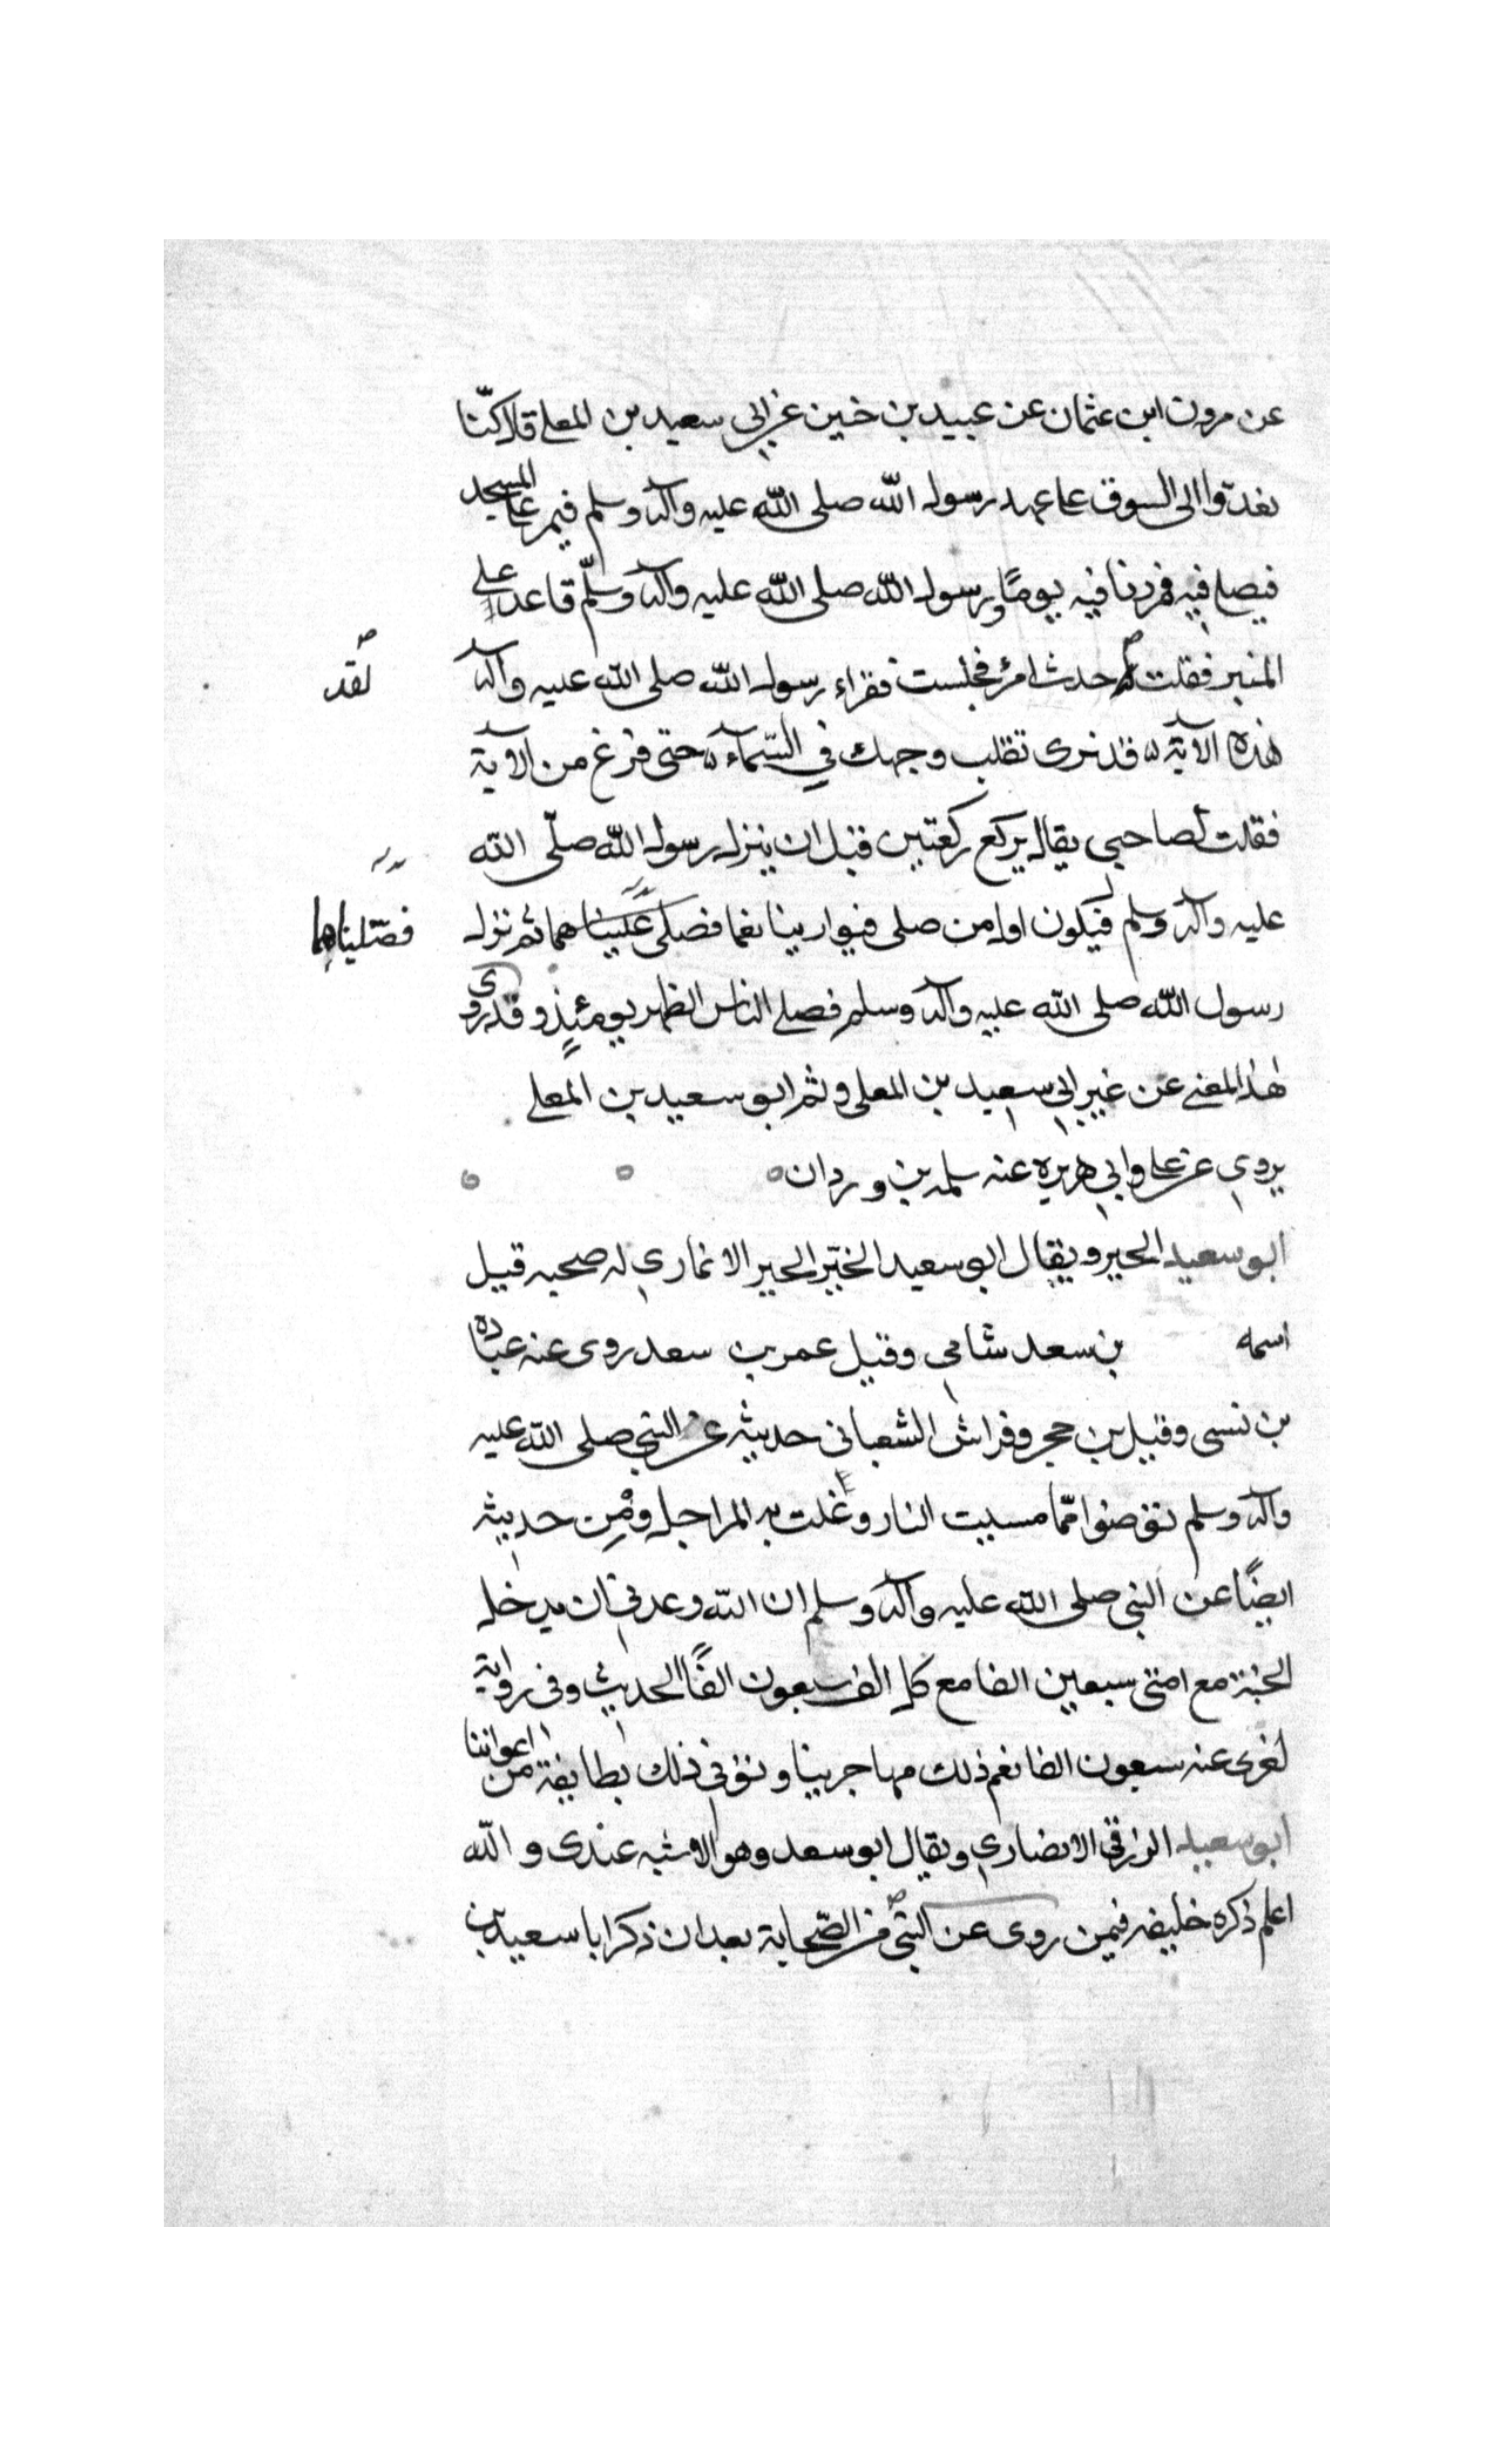 عن مرون ابن عثمان عن عبيد بن خين عن ابي سعيد بن المعلى قال كنّا
نغدوا الى السوق على عهد رسول الله صلى الله عليه وآله وسلم فيمر على المسجد
فيصلي فيه فمررنا فيه يومًا ورسول الله صلى الله عليه وآله وسلّم قاعد على
المنبر فقلت حدث امر فجلست فقراء رسول الله صلى الله عليه وآله
لقد
هذه الآية قد نرى تقلب وجهك في السّمآء حتى فرغ من الآية
فقلت لصاحبي يقال يركع ركعتين قبل ان ينزل رسول الله صلّى الله
عليه وآله وسلم فيكون اول من صلى فتوارينا نعما فصلى علينا هما ثم نزل
فصّليناهما
رسول الله صلى الله عليه وآله وسلم فصلى الناس الظهر يومئذٍ وقد روى
هذا المعنى عن غير ابي سعيد بن المعلى وثم ابو سعيد بن المعلى
يروي عن على وابي هريرة عنه سلمه بن وردان
ابو سعيد الحير ويقال ابو سعيد الخيّر الحير الانماري له صحبه قيل
اسمه بن سعد شامي وقيل عمر بن سعد روى عنه عباده
بن نسى وقيل بن حجر وفراش الشعباني حديثه عن النبي صلى الله عليه
وآله وسلم توضئوا ممّا مسيت النار وغلت به المراجل ومن حديثه
ايضًا عن النبي صلى الله عليه وآله وسلم ان الله وعدني ان يدخل
الجنة مع امتى سبعين الفا مع كل الف سبعون الفًا الحديث وفى رواية
لغرى عنه سبعون الفا نعم ذلك مهاجرينا ونوفي ذلك بطايفة من اعواننا
ابو سعيد الزرقي الانصاري ويقال ابو سعد وهو الاشبه عندى والله
اعلم ذكره خليفه فيمن روى عن النبيّ من الصّحابة بعد ان ذكر ابا سعيد بن